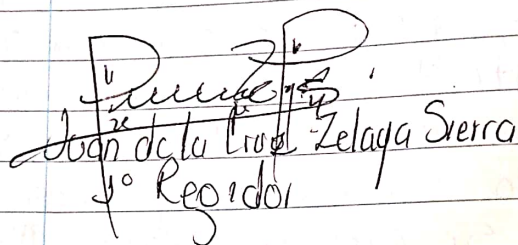 Juan de la Cruz Zelaya Sierra
1º Regidor